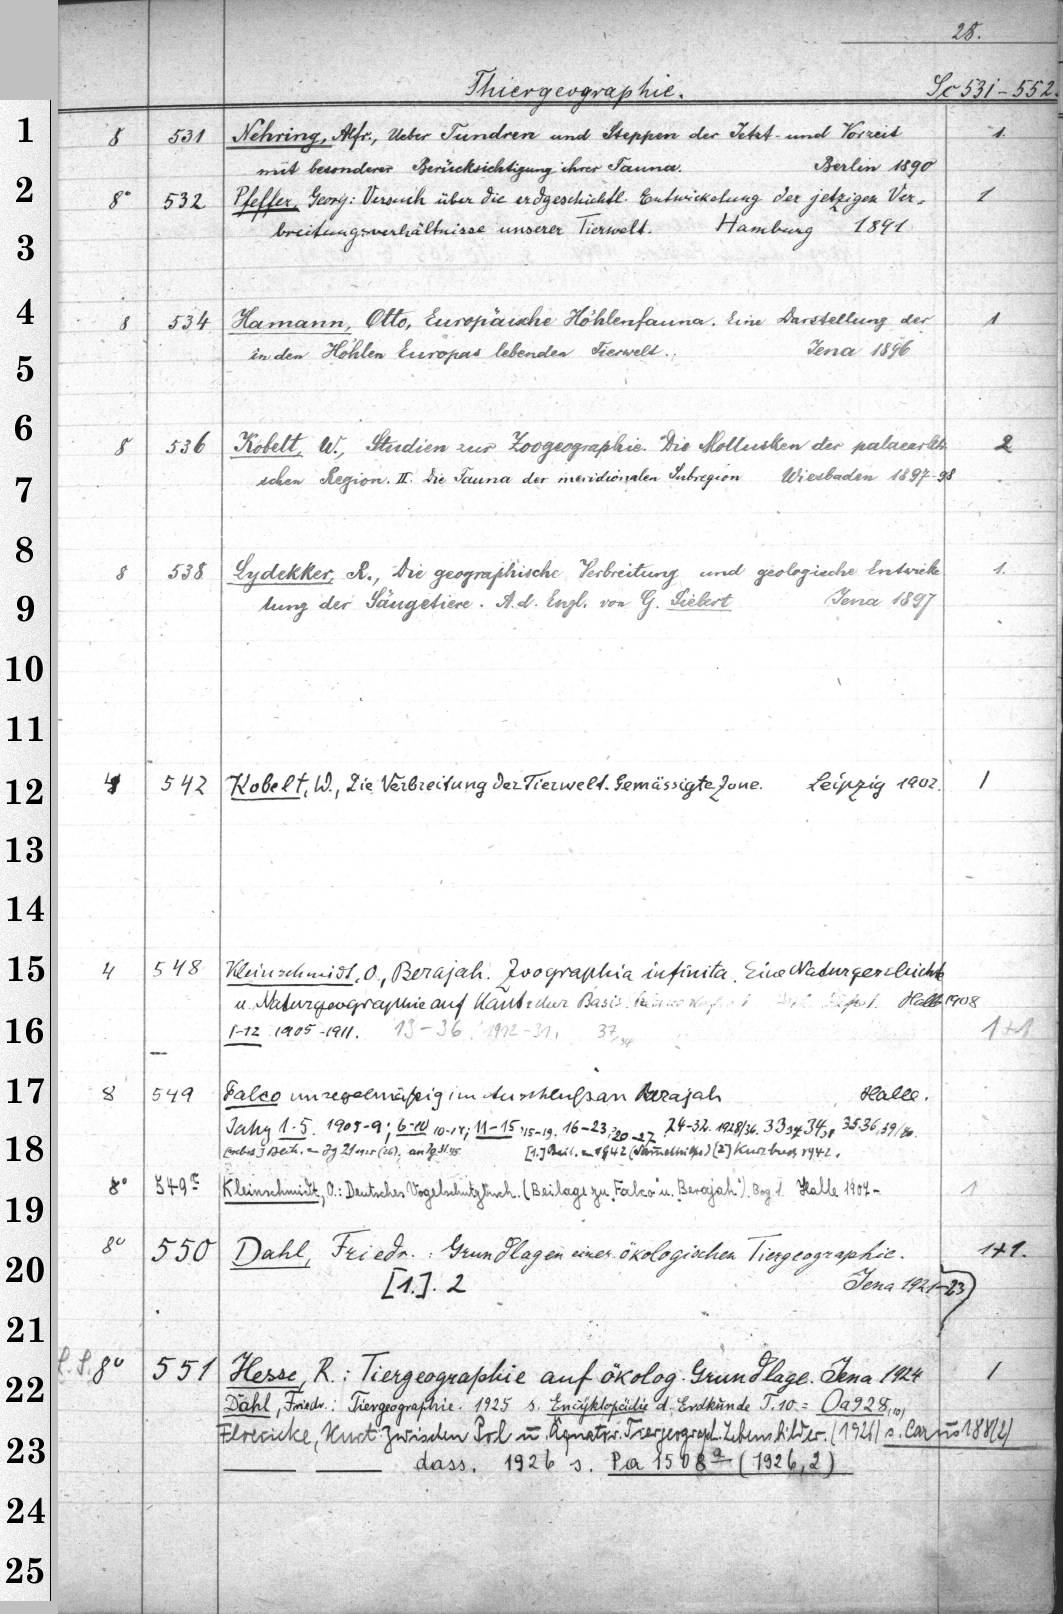 28.
Thiergeographie. Sc 531-552.
1 8 531 Nehring, Alfr., Ueber Tundren und Steppen der Jetzt- und Vorzeit 1.
mit besonderer Berücksichtigung ihrer Fauna. Berlin 1890
2 8° 532 Pfeffer, Georg: Versuch über die erdgeschichtl. Entwickelung der jetzigen Ver- 1
3 breitungsverhältnisse unserer Tierwelt. Hamburg 1891
4 8 534 Hamann, Otto, Europäische Höhlenfauna. Eine Darstellung der 1
5 in den Höhlen Europas lebenden Tierwelt. Jena 1896
6 8 536 Kobelt, W., Studien zur Zoogeographie. Die Mollusken der palaearkti- 2
7 schen Region. II. Die Fauna der meridionalen Subregion Wiesbaden 1897-98
8 8 538 Lydekker, R., Die geographische Verbreitung und geologische Entwicke 1.
9 lung der Säugetiere. A. d. Engl. von G. Siebert Jena 1897
10
11
12 4 542 Kobelt, W., Die Verbreitung der Tierwelt. Gemässigte Zone. Leipzig 1902. 1
13
14
15 4 548 Kleinschmidt, O., Berajah. Zoographia infinita. Eine Naturgeschichte
u. Naturgeographie auf Kantscher Basis. Halle 1908
16 1-12 1905-1911. 13-36 1912-31. 37 1+1
17 8 549 Falco unregelmäßig im Anschluß an Berajah Halle.
Jahrg 1-5. 1905-9; 6-10 10-14; 11-15 15-19. 16-23 20-27 24-32. 1928/36. 33 37 34 38 35 36, 39/40.
18 1942 Kurzbuch 1942.
8° 549 Kleinschmidt, O.: Deutsches Vogelschutzbuch. (Beilage zu "Falco" u. "Berajah"). Bog 1. Halle 1907- 1
19
8° 550 Dahl, Friedr. : Grundlagen einer ökologischen Tiergeographie. 1+1.
20 [1.]. 2 Jena 1921-23
21
22 8° 551 Hesse, R. : Tiergeographie auf ökolog. Grundlage. Jena 1924 1
Dahl, Friedr. : Tiergeographie. 1925 s. Encyklopädie d. Erdkunde T. 10. = Oa 928 (10)
23 Floericke, Kurt: Zwischen Pol u Äquator. Tiergeograph. Lebensbilder. (1926) s. Carus 188(2)
dass. 1926 s. Pa 1508a (1926, 2)
24
25